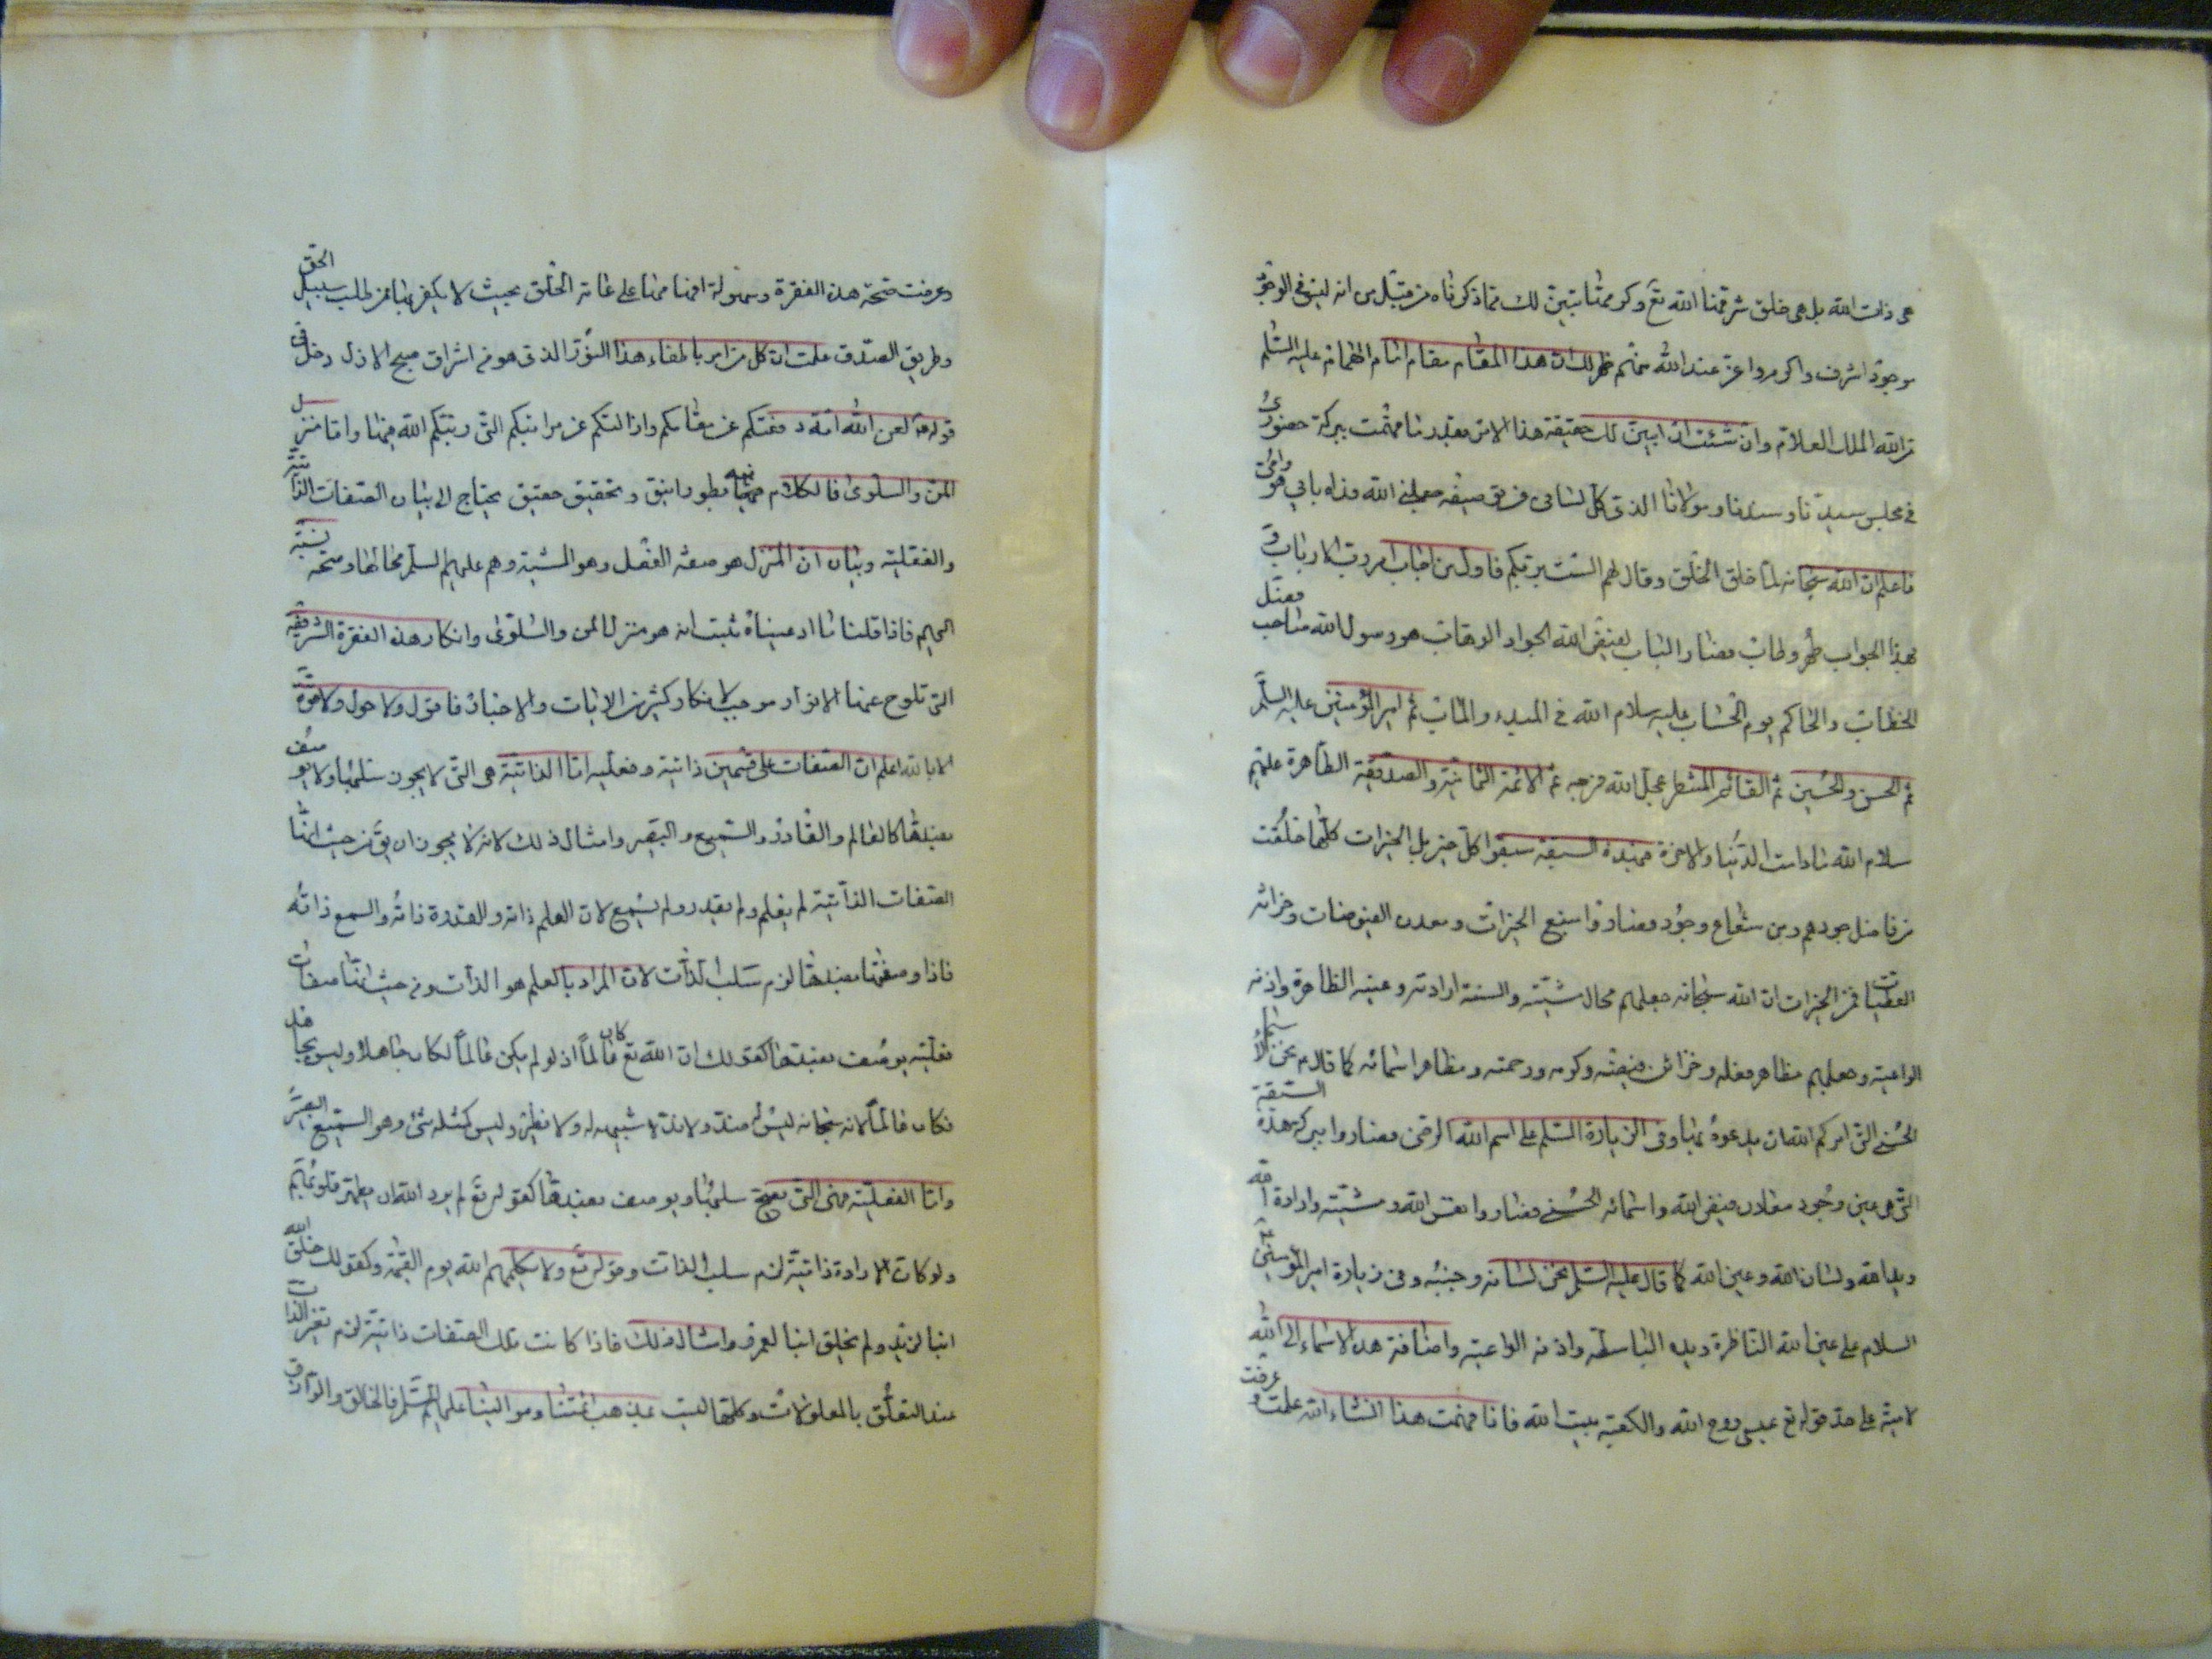 هى ذات الله بل هى خلق شرفها الله تع وكرمها تبين لك مما ذكرناه من قبل من انه ليس فى الوجود
موجود اشرف واكرم واعز عند الله منهم ظهر لك ان هذا المقام مقام امام عليه السلم
من الله الملك العلام وان شئت ان ابين لك حقيقة هذا الامر بقدر ما فهمت ببركة حضورى
فى مجلس سيدنا وسندنا ومولانا الذى كل لسانى جعلنى الله فداه بابى هو وامى
فاعلم ان الله سبحانه لما خلق الخلق وقال لهم الست بربكم فاول من اجاب رب الارباب
بهذا الجواب طهر وطاب فصار الباب لفيض الله الجواد الوهاب هو رسول الله صاحب فصل
الخطاب والحاكم يوم الحساب عليه سلام الله فى المبدء والماب ثم امير المؤمنين عليه السلم
ثم الحسن والحسين ثم القائم المنتظر عجل الله فرجه ثم الائمة الثمانية والصديقة الطاهرة عليهم
سلام الله ما دامت الدنيا والاخرة فبهذه السبقة سبقوا كل خير بل الخيرات كلها خلقت
من فاضل جودهم ومن شعاع وجود فصاروا منبع الخيرات ومعدن الفيوضات وخزائن
العطيات فمن الخيرات ان الله سبحانه جعلهم محال مشيته والسنة ارادته وعينه الناظرة واذنه
الواعية وجعلهم مظاهر فعله وخزائن فيضه وكرمه ورحمته ومظاهر اسمائه كما قال نحن الاسماء
الحسنى التى امركم الله ان تدعوه بها وفى الزيارة السلم على اسم الله الرضى فصاروا ببركة هذه السبقة
التى هى عين وجود فيض الله واسمائه الحسنى فصاروا نفس الله ومشيته وارادة الله
ويد الله ولسان الله وعين الله كما قال عليه السلم نحن لسانه وجنبه وفى زيارة امير المؤمنين
السلام على عين الله الناظرة ويده الباسطة واذنه الواعية واضافة هذه الاسماء الى الله
لامية على حد قوله تع عيسى روح الله والكعبة بيت الله فاذا فهمت هذا انشاء الله علمت وعرفت
وعرفت صحة هذه الفقرة وسهولة على عامة الخلق بحيث لا يكفر بها من طلب سبيل الحق
وطريق الصدق علمت ان كل من امر باطفاء هذا النور الذى هو من اشراق صبح الازل دخل فى
قوله لعن الله امة دفعتكم عن مقامكم وازالتكم عن مراتبكم التى رتبكم الله فيها واما منزل
المن والسلوى فالكلام فيه بطور انيق وتحقيق حقيق يحتاج الى بيان الصفات الذاتية
والفعلية وبيان ان المنزل هو صفة الفعل وهو المشية وهم عليهم السلم محالها وصحة نسبته
اليهم فاذا قلنا ما ادعيناه ثبت انه هو منزل المن والسلوى وانكار هذه الفقرة الشريفة
التى تلوح عنها الانوار موجب لانكار كثير من الايات والاخبار فاقول ولا حول ولا قوة
الا بالله اعلم ان الصفات على قسمين ذاتية وفعلية اما الذاتية هى التى لا يجوز سلبها ولا يوصف
بضدها كالعالم والقادر والسميع والبصير وامثال ذلك لانه لا يجوز ان يق من حيث انها
الصفات الذاتية لم يعلم ولم يقدر ولم يسمع لان العلم ذاته والقدرة ذاته والسمع ذاته
فاذا وصفتها بضدها لزم سلب الذات لان المراد بالعلم هو الذات ومن حيث انها صفات
فعلية يوصف بضدها كقولك ان الله تع كان عالما اذ لو لم يكن عالما لكان جاهلا وليس بجاهل
فكان عالما لانه سبحانه ليس له ضد ولا ند ولا شبيه له ولا نظير وليس كمثله شئ وهو السميع البصير
واما الفعلية فهى التى يصح سلبها ويوصف بضدها كقوله تع لم يرد الله ان يطهر قلوبهم
ولو كان الارادة ذاتية لزم سلب الذات وقوله تع ولا يكلمهم الله يوم القيمة وكقولك خلق الله
ابنا لزيد ولم يخلق ابنا لعمرو وامثال ذلك فاذا كانت تلك الصفات ذاتية لزم تغير الذات
عند التعلق بالمعلولات وكلها ليست بمذهب ائمتنا وموالينا عليهم السلم فالخالق والرازق